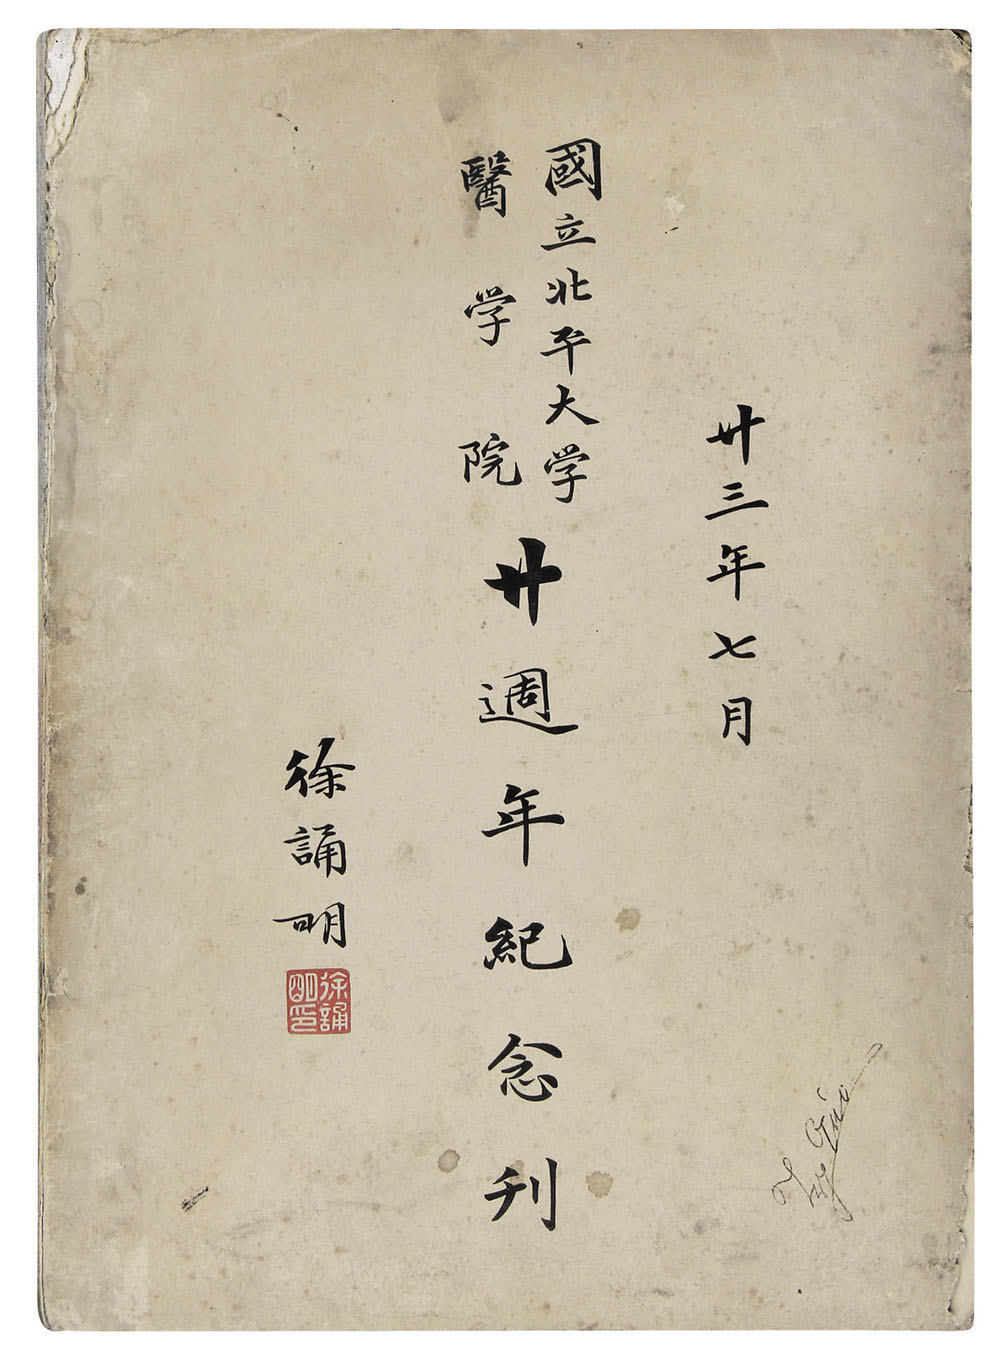 廿三年七月
國立北平大学
醫学院
廿週年紀念刊
徐誦明
徐誦
明印